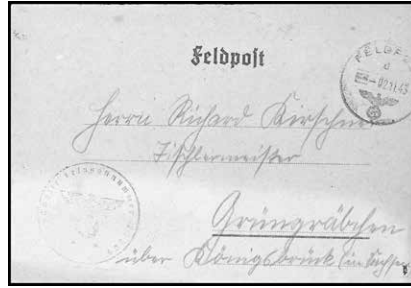 Feldpost
FELDP
d
02.11.43
Herrn Richard Kirschner
Tischlermeister
Grüngräbchen
über Königsbrück (in Sachsen